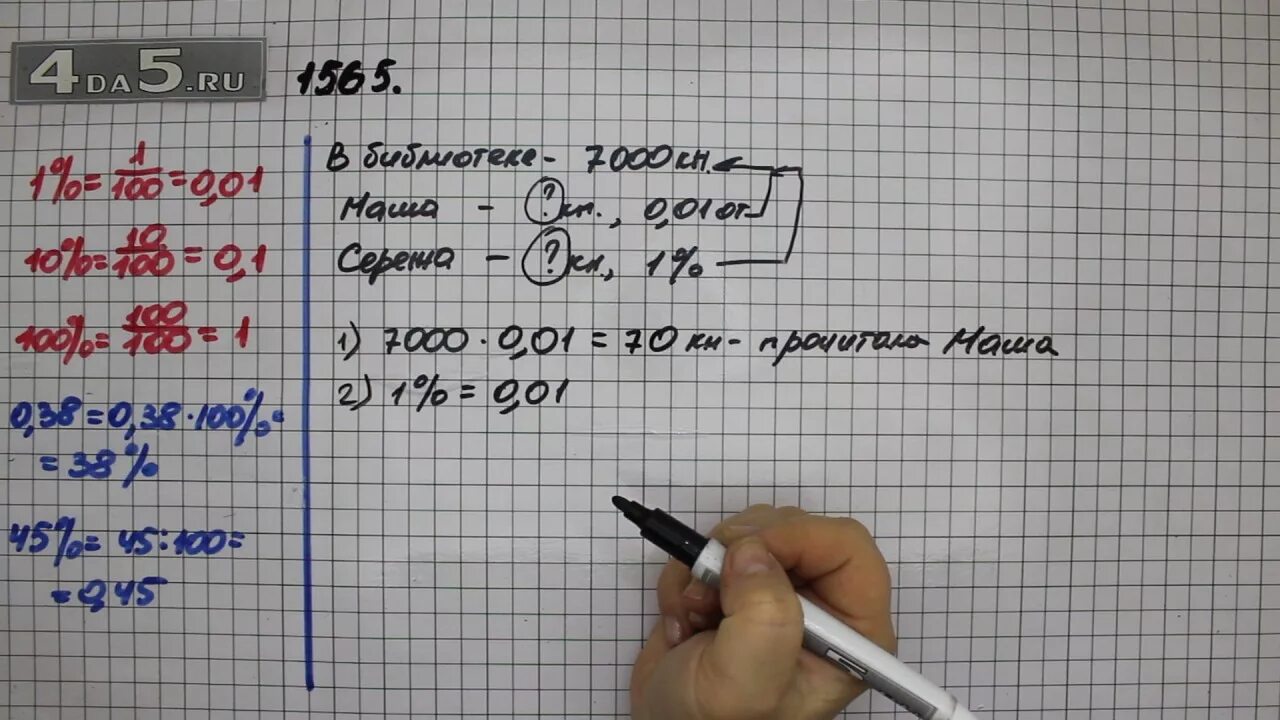 4DA5.RU
1565.
1% = 1/100 = 0,01
10% = 10/100 = 0,1
100% = 100/100 = 1
0,38 = 0,38 · 100% =
= 38%
45% = 45 : 100 =
= 0,45
В библиотеке - 7000 кн.
Маша - ? кн., 0,01 от
Сережа - ? кн., 1%
1) 7000 · 0,01 = 70 кн - прочитала Маша
2) 1% = 0,01